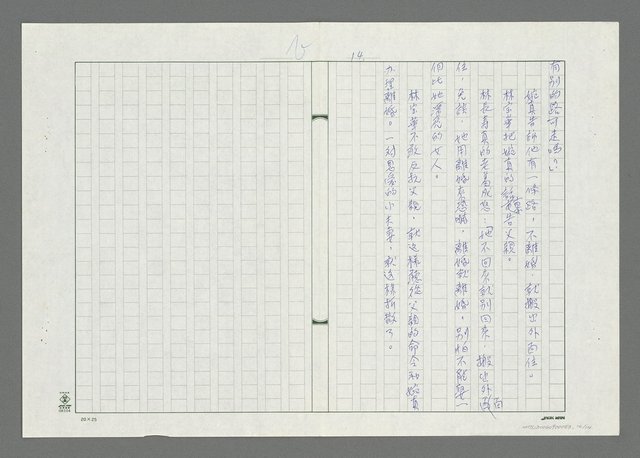 14
有別的路可走嗎?」
婉真告訴他有一條路,不離婚,就搬出外面住。
林宗華把婉真的話稟告父親。
林長壽真的老羞成怒:她不回來就別回來,搬出外面
住,免談,她用離婚來恐嚇,離婚就離婚,別怕不能娶一
個比她漂亮的女人。
林宗華不敢反抗父親,就這樣聽從父親的命令和婉真
办理離婚。一对恩愛的小夫妻,就这樣拆散了。
20×25